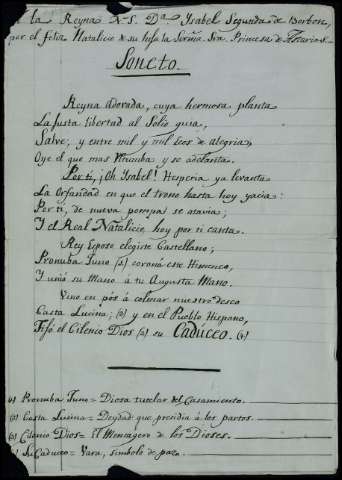 A la Reyna N.S. Dª. Ysabel Segunda de Borbon,
por el feliz Natalicio de su hija la Serma. Sra. Princesa de Asturias.
Soneto.
Reyna Adorada, cuya hermosa planta
La justa libertad al Solio guia,
Salve; y entre mil y mil écos de alegria,
Oye el que mas retumba y se adelanta.
Por ti, ¡Oh Ysabel! Hesperia ya levanta
La Orfandad en que el trono hasta hoy yacia:
Por ti, de nueva pompa se atavia;
Y el Real Natalicio hoy por ti canta.
Rey Esposo elegiste Castellano;
Pronuba Juno (1) coronó este Himeneo,
Y unió su Mano á tu Augusta Mano.
Vino en pós á colmar nuestro deseo
Casta Lucina; (2) y en el Pueblo Hispano,
Fijó el Cilenio Dios (3) su Caducéo. (4)
(1) Pronuba Juno = Diosa tutelar del Casamiento.
(2) Casta Lucina = Deydad que presidia á los partos.
(3) Cilenio Dios = El Mensagero de los Dioses.
(4) Su Caduceo = Vara, simbolo de paz.